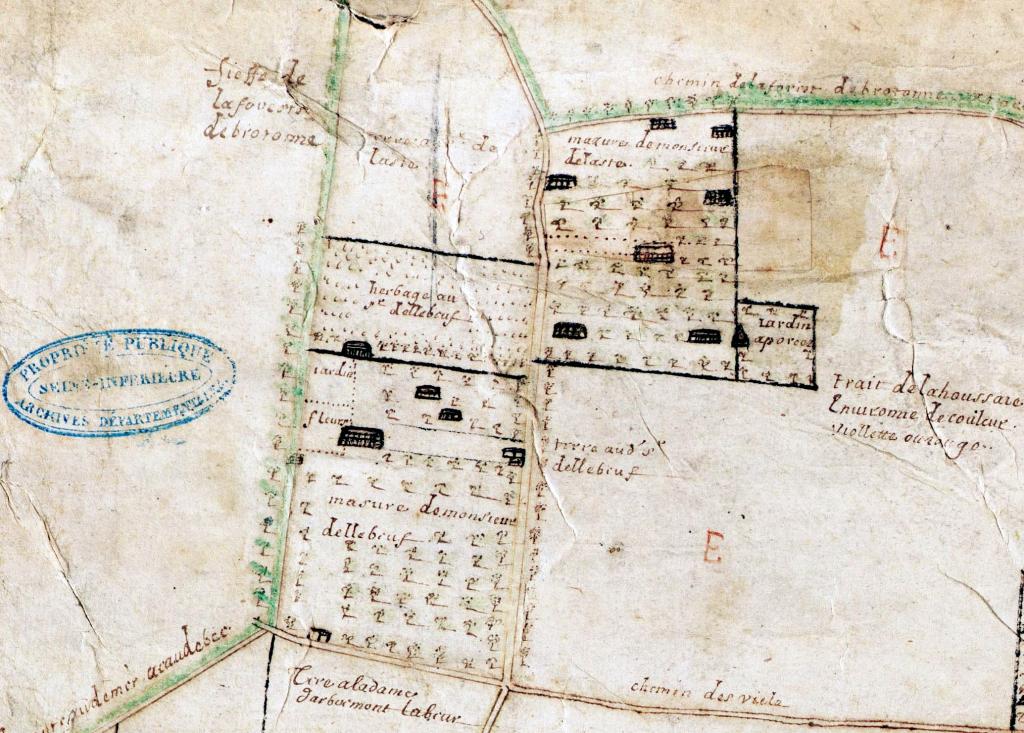 fieffe de
laforests
debrotonne
chemin delaforest debrotonne
terre de
laste
mazure demonsieur
delaste
E
E
herbage au
sr dellebeuf
iardin
aporee
PROPRIÉTÉ PUBLIQUE
SEINE-INFÉRIEURE
ARCHIVES DÉPARTEMENTALES
iardin
fleurs
trait delahoussaie
Enuironne decouleur
viollette
terre aud sr
dellebeuf
masure demonsieur
dellebeuf
E
acaudebec
Terre aladame
darbermont labeur
chemin des